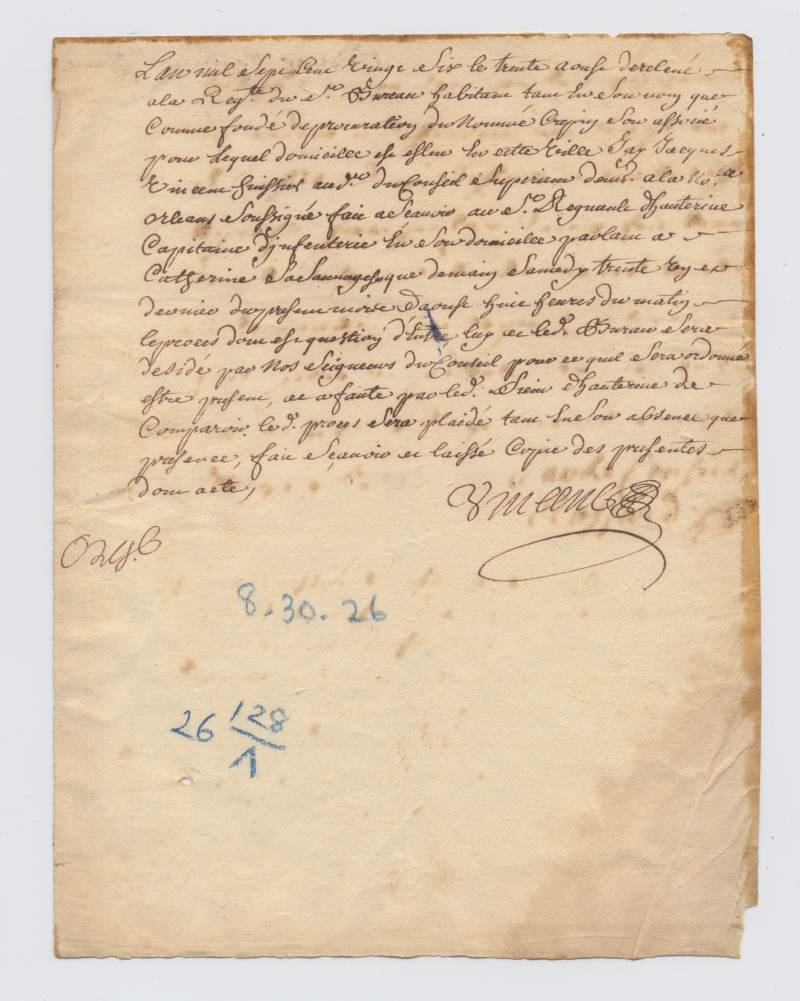 L'an mil sept Cent vingt e Six le trente aoust de relevé
a la Reqte. du Sr. Bureau habitant tant En Son nom que
Comme fondé de procuration du Nommé Crepin Son associé
pour Lequel domicille est esleu En cette ville Jay Jacques
Vincent huissier au du Conseil Superieur demt. a la Nole.
orleans Soussigné fait a Scavoir au Sr. Regnault dhauterive
Capitaine d'jnfenterie En Son domicille parlant a
Catherine Sa Sauvagesse que demain Samedy trente
dernier du present mois Daoust huit heures du matin
le proces dont est question d'Entre luy et led. Bureau Sera
desidé par Nos Seigneurs du Conseil pour ce quil Sera ordonné
estre present, et a faute par led. Sieur dhauterive de
Comparoir. le d. proces Sera plaidé tant En Son absence que
presence, fait Scavoir et laissé Copie des presentes
dont acte,
Vincent
8.30.26
26 128
1